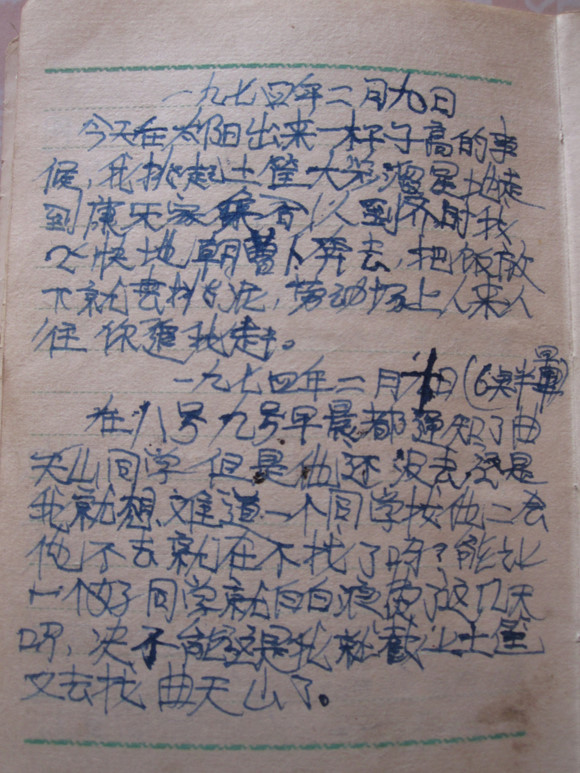 一九七四年二月九日
今天在太阳出来一杆子高的事
候,我挑起土筐大步流星地走
到康天家集合,人到齐时我
飞快地朝萝卜奔去,把饭放
下就去挑泥,劳动场上人来人
往你追我赶。
一九七四年二月十日(6奥半量)
在八号九号早晨都通知了曲
天山同学但是他还没去,这是
我就想,难道一个同学找他二去
他不去就在不找了吗?能让
一个好同学就白白浪费了这几天
呀,决不能这是我就戴上土筐
又去找曲天山了。